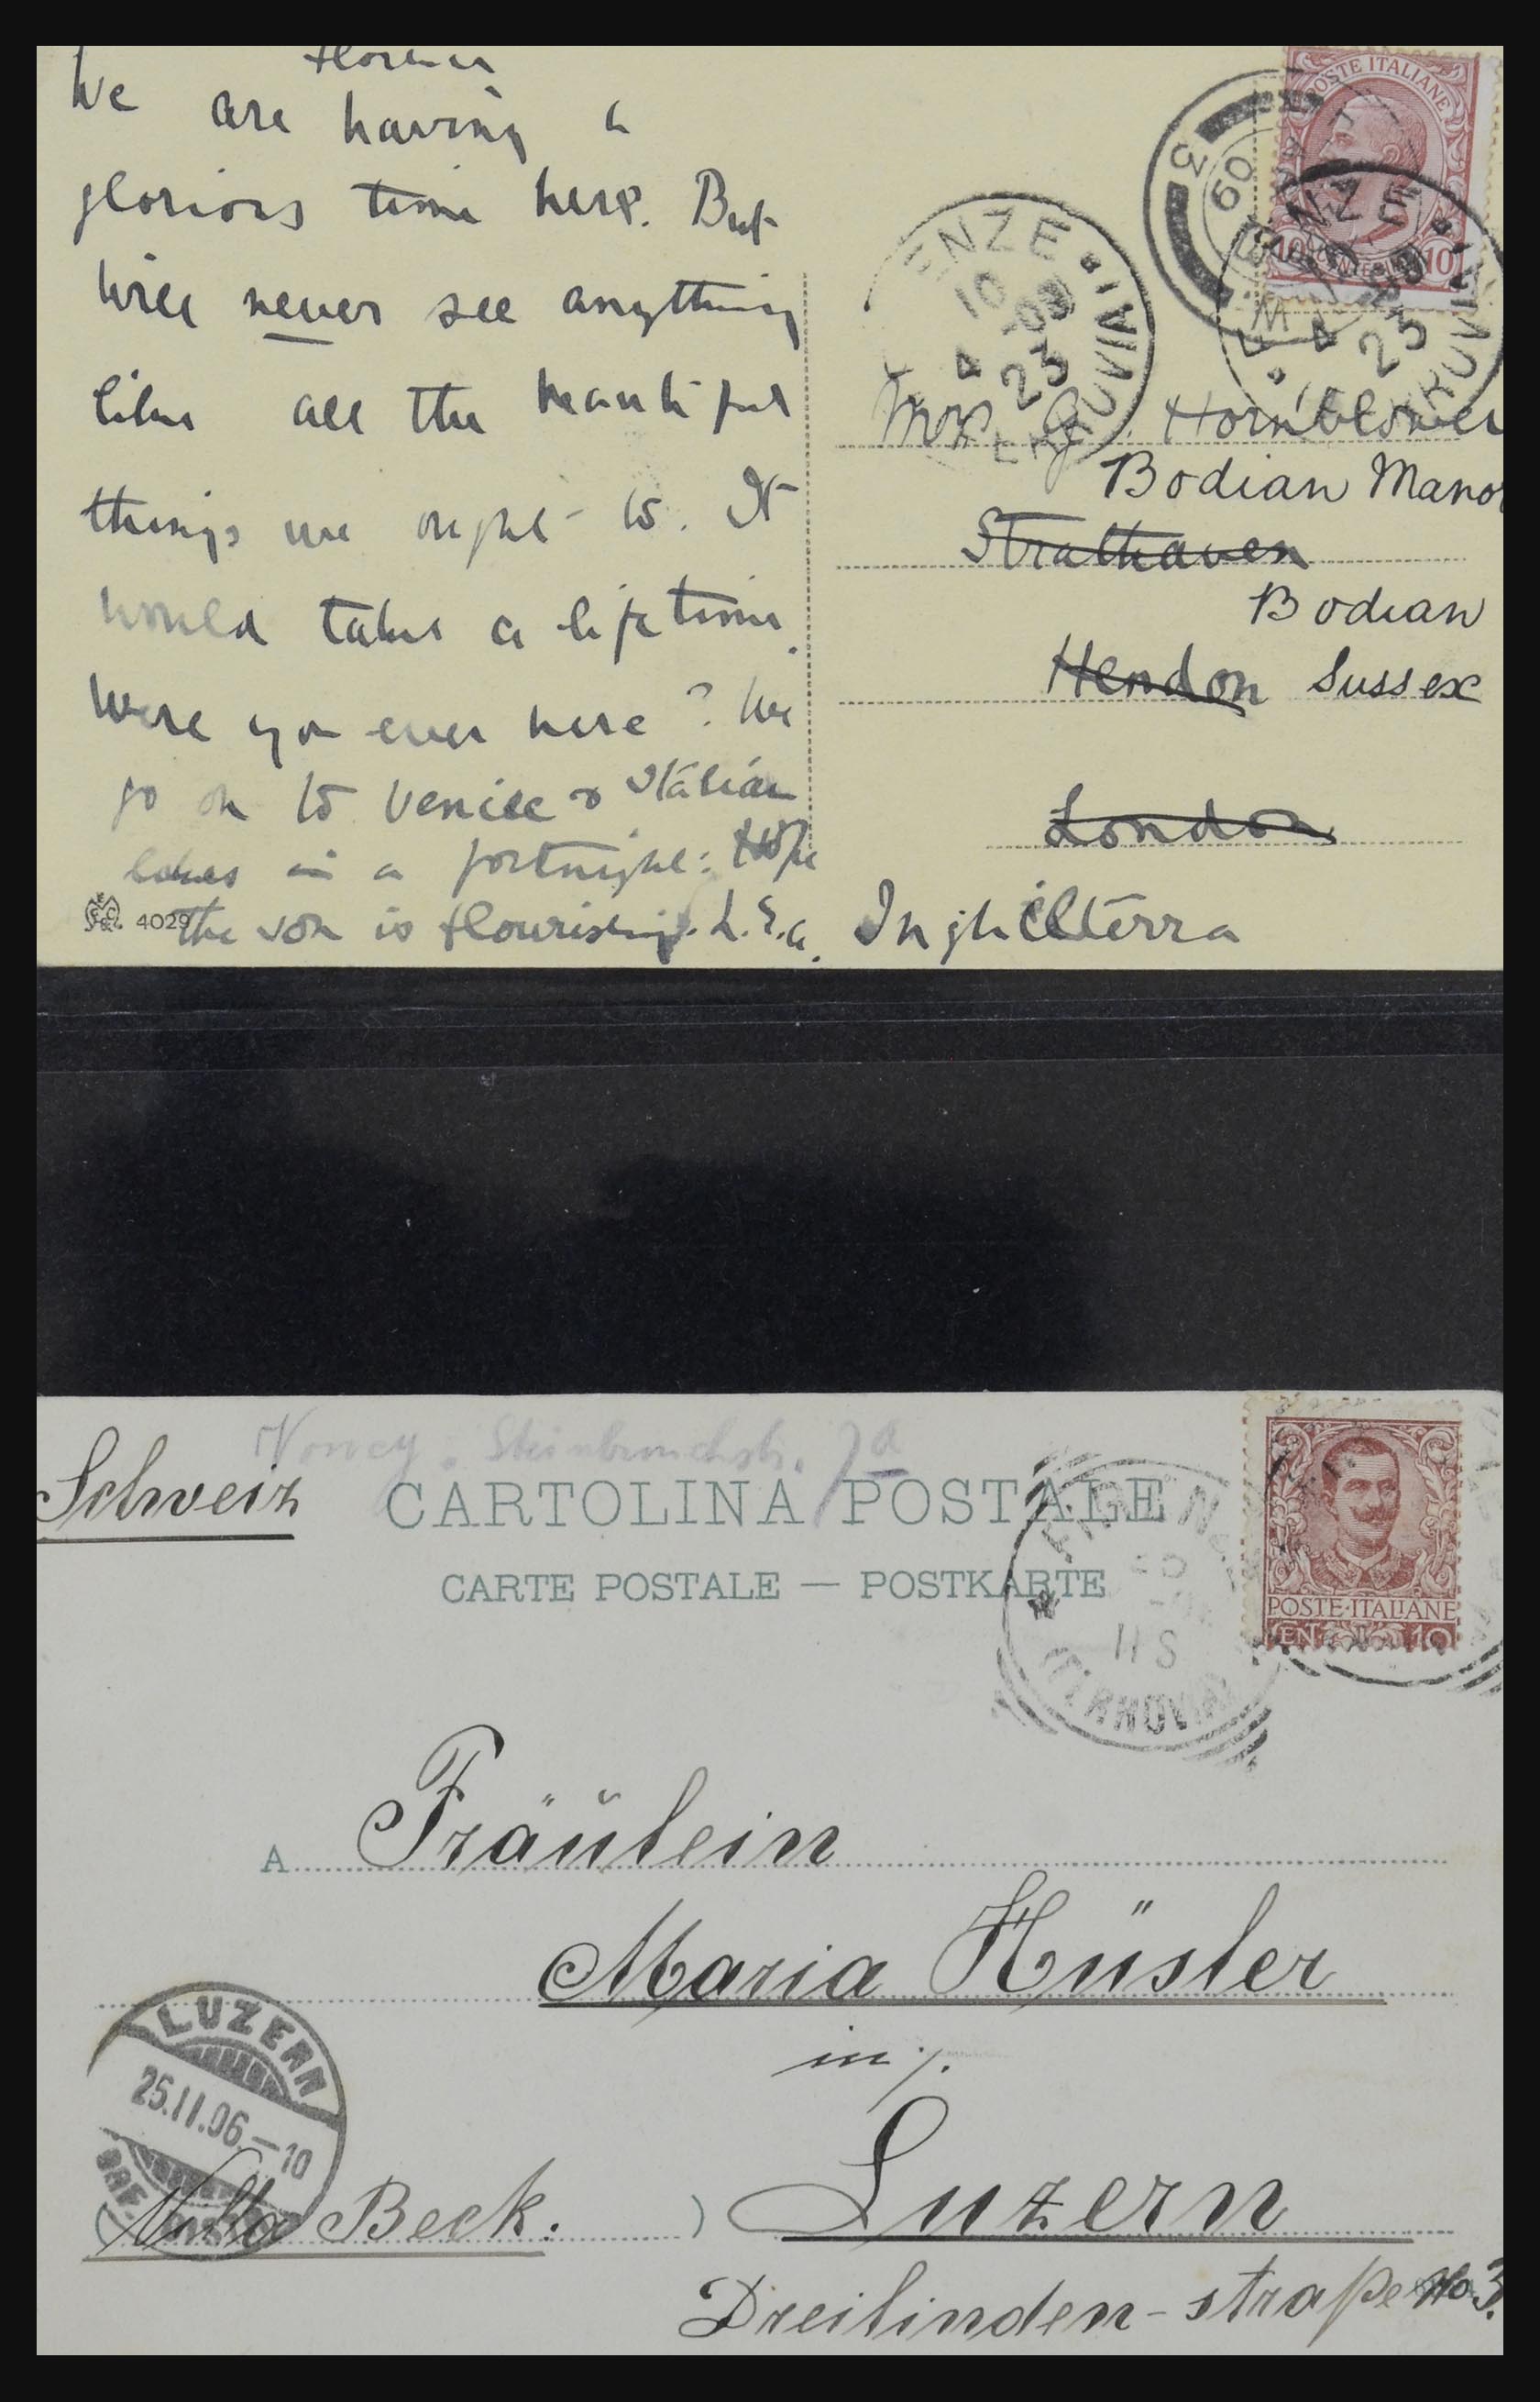 Florence
We are having a
glorious time here. But
will never see anything
like all the beautiful
things we ought to. It
would take a life time.
Were you ever here? We
go on to Venice & Italian
lakes in a fortnight: Hope
the son is flourishing. L.E.a.
4029
POSTE ITALIANE
10 10
3
09
ENZE
10
4 09
23
Hornblower
Bodian Manor
Strathaven
Bodian
Hendon Sussex
London
Inghilterra
Schweiz
CARTOLINA POSTALE
CARTE POSTALE — POSTKARTE
11 S
POSTE·ITALIANE
CENT. 10
A Fräulein
Maria Hüsler
in/.
LUZERN
25.11.06.–10
BRF.
(Villa Beck.) Luzern
Dreilinden-straße No 3.